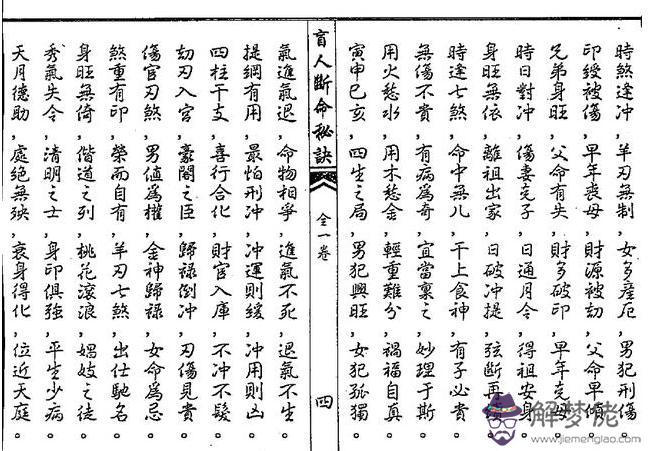 時煞逢冲，羊刃無制，女多產厄，男犯刑傷。
印綬被傷，早年喪母，財源被劫，父命早傾。
兄弟身旺，父命有失，財多破印，早年克母。
時日對冲，傷妻克子，日通月令，得祖安身。
身旺無依，離祖出家，日破冲提，弦斷再續。
時逢七煞，命中無兒，干上食神，有子必貴。
無傷不貴，有病為奇，宜當稟之，妙理于斯。
用火愁水，用木愁金，輕重難分，禍福自真。
寅申巳亥，四生之局，男犯興旺，女犯孤獨。
盲人斷命秘訣
全一卷
四
氣進氣退，命物相爭，進氣不死，退氣不生。
提綱有用，最怕刑冲，冲運則緩，冲用則凶。
四柱干支，喜行合化，財官入庫，不冲不發。
劫刃入官，臺閣之臣，歸祿倒冲，刃傷見貴。
傷官刃煞，男值為權，金神歸祿，女命為忌。
煞重有印，榮而自有，羊刃七煞，出仕馳名。
身旺無倚，僧道之列，桃花滾浪，娼妓之徒。
秀氣失令，清明之士，身印俱強，平生少病。
天月德助，處絕無殃，衰身得化，位近天庭。
解梦佬
www.jiemenglao.com